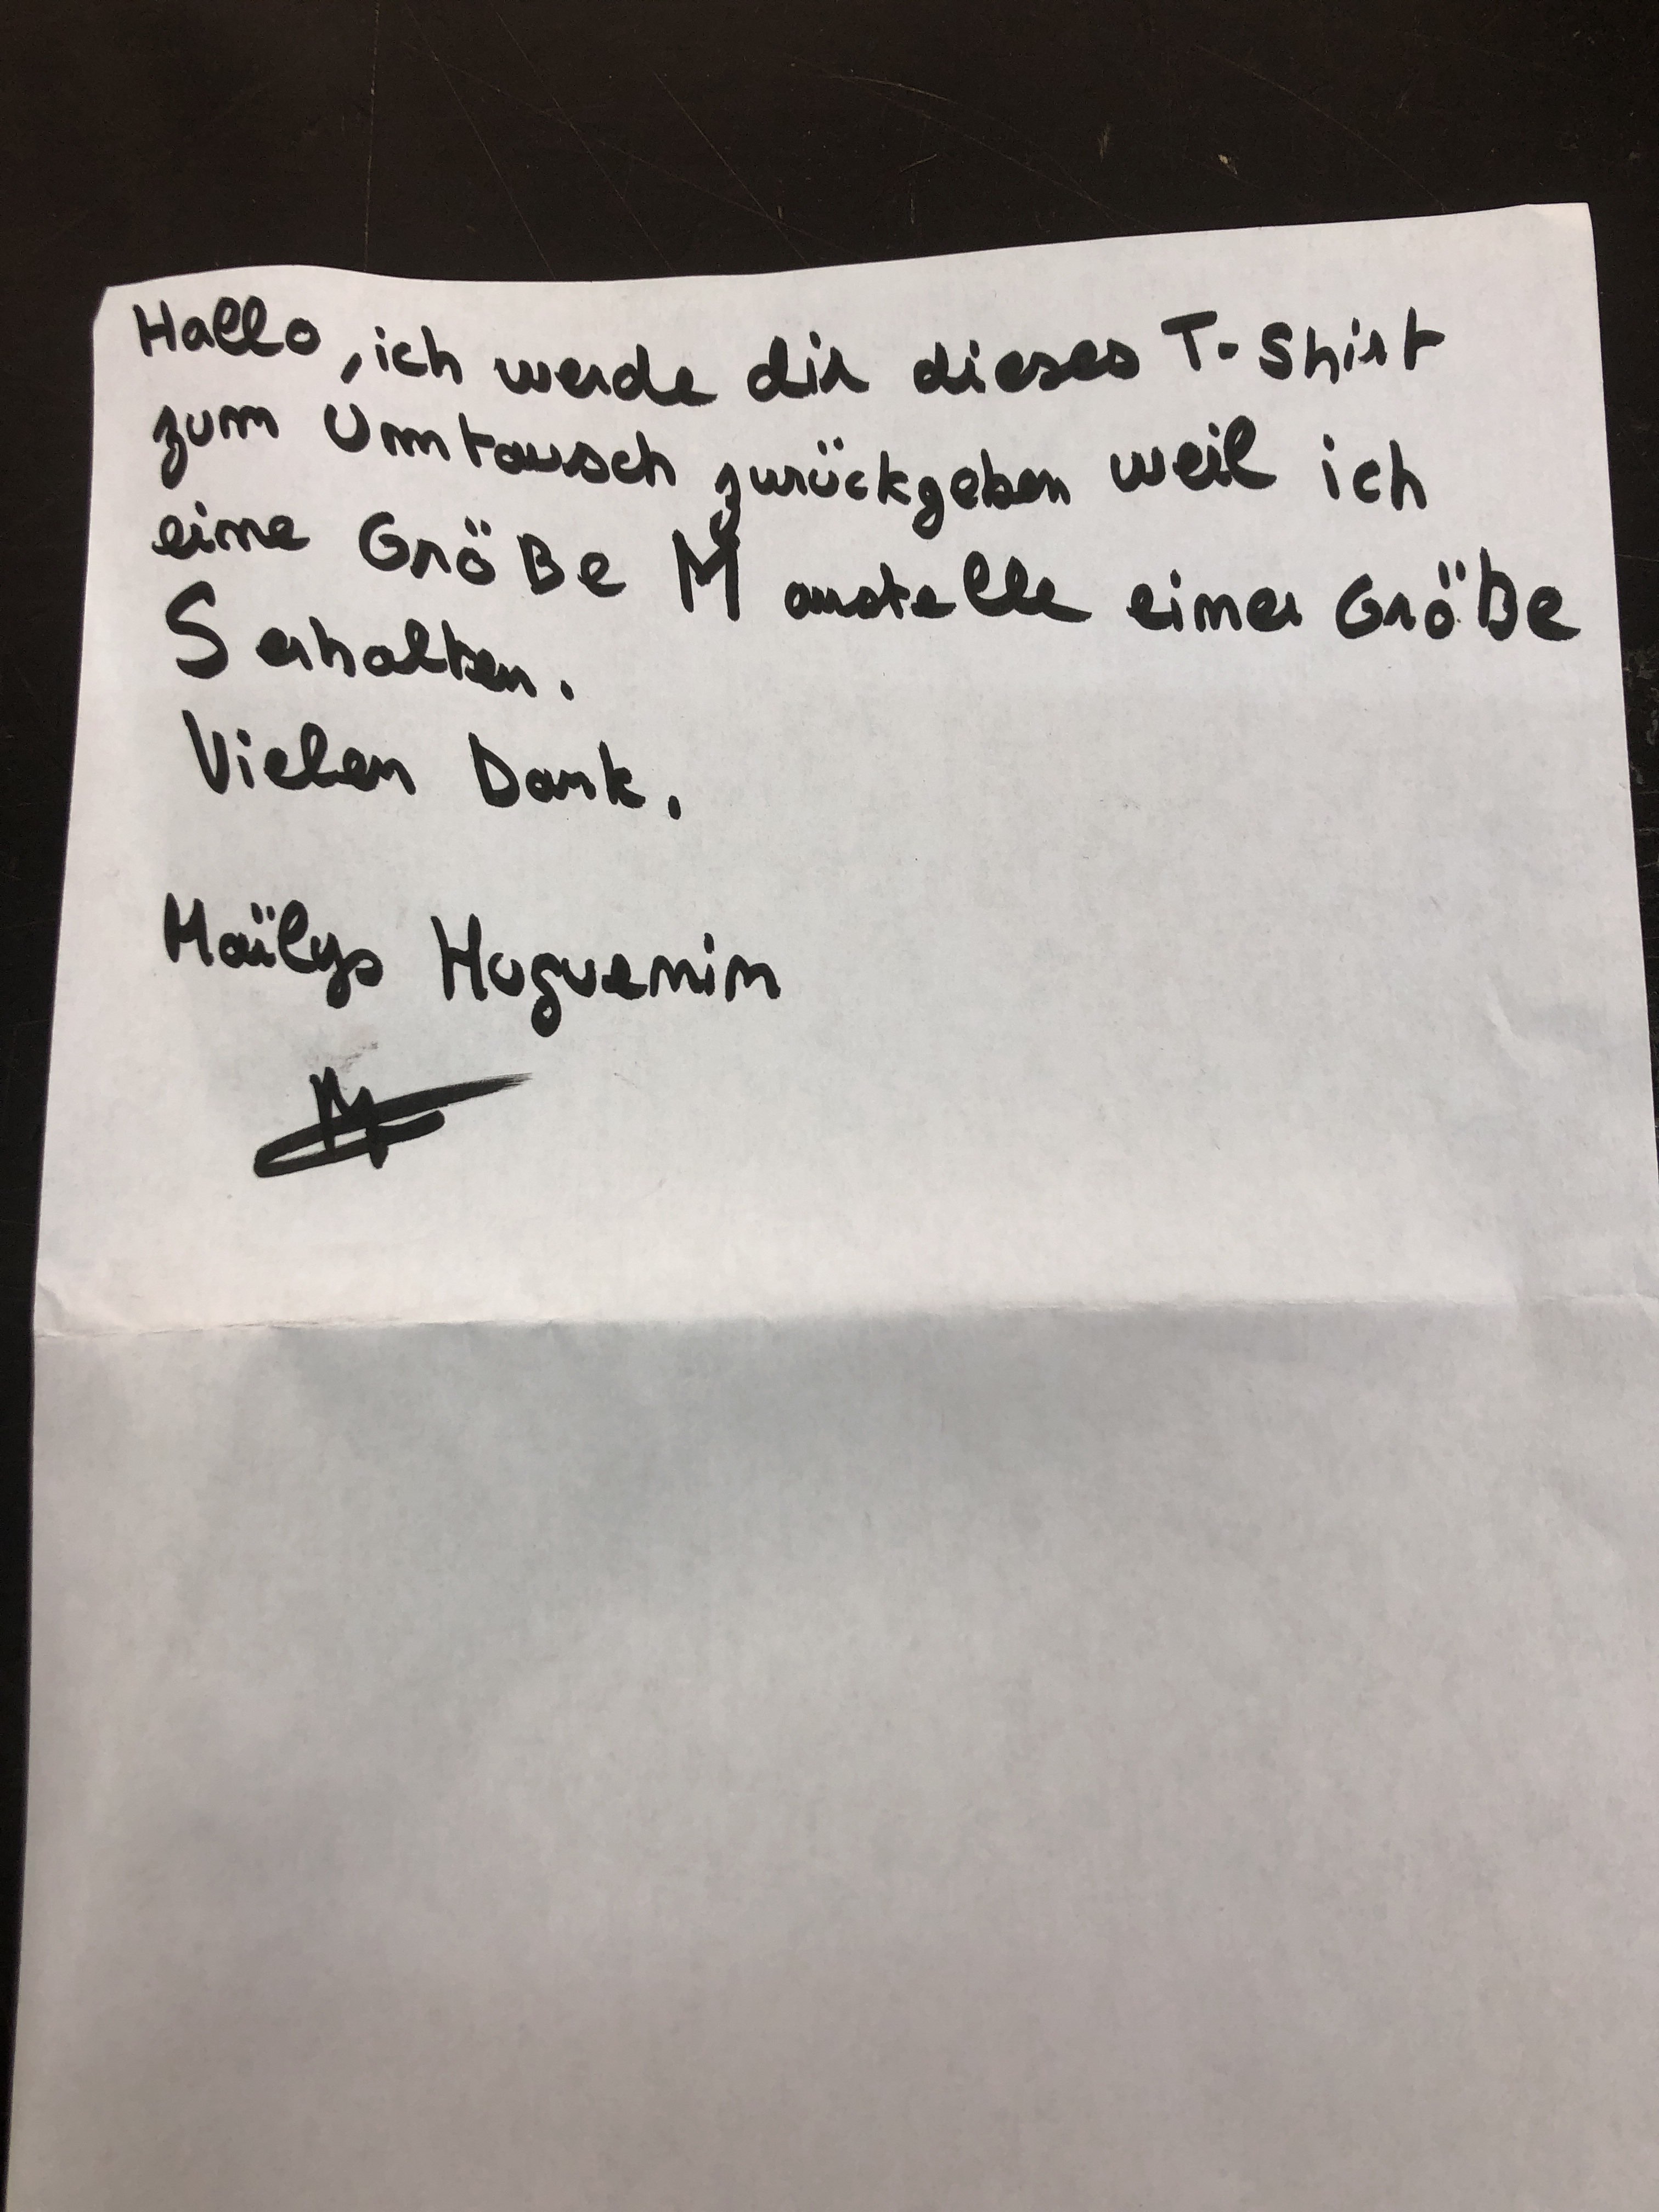 Hallo, ich werde dir dieses T-Shirt
zum Umtausch zurückgeben weil ich
eine Größe M anstelle einer Größe
S erhalten.
Vielen Dank.
Maïlys Huguenin
M